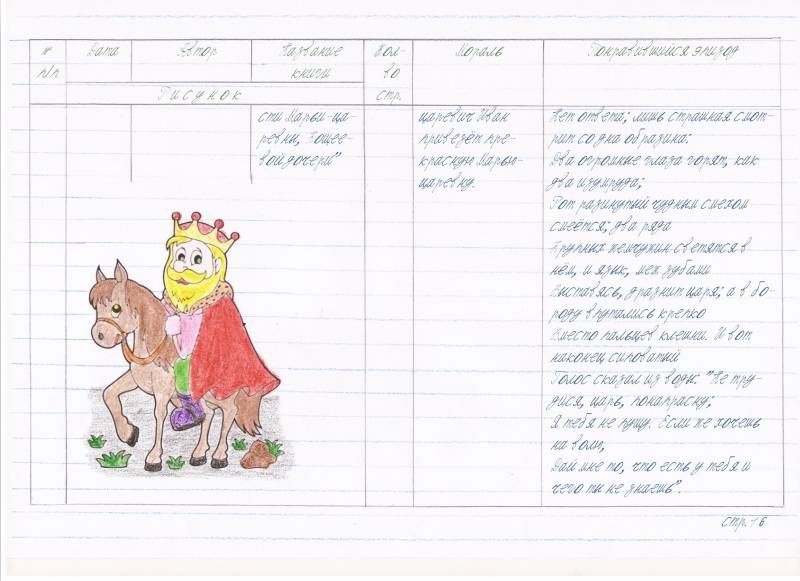 № п/п
Дата
Автор
Название книги
Кол-во стр.
Мораль
Понравившийся эпизод
Рисунок
сти Марьи-ца-
ревны, Кощее-
вой дочери"
царевич Иван
привезёт пре-
красную Марью-
царевну.
Нет ответа; лишь страшная смот-
рит со дна образина:
Два огромные глаза горят, как
два изумруда;
Рот разинутый чудным смехом
смеётся; два ряда
Крупных жемчужин светятся в
нём, и язык, меж зубами
Выставясь, дразнит царя; а в бо-
роду впутались крепко
Вместо пальцев клешни. И вот
наконец сиповатый
Голос сказал из воды: "Не тру-
дися, царь, понапрасну;
Я тебя не пущу. Если же хочешь
на волю,
Дай мне то, что есть у тебя и
чего ты не знаешь".
стр. 16